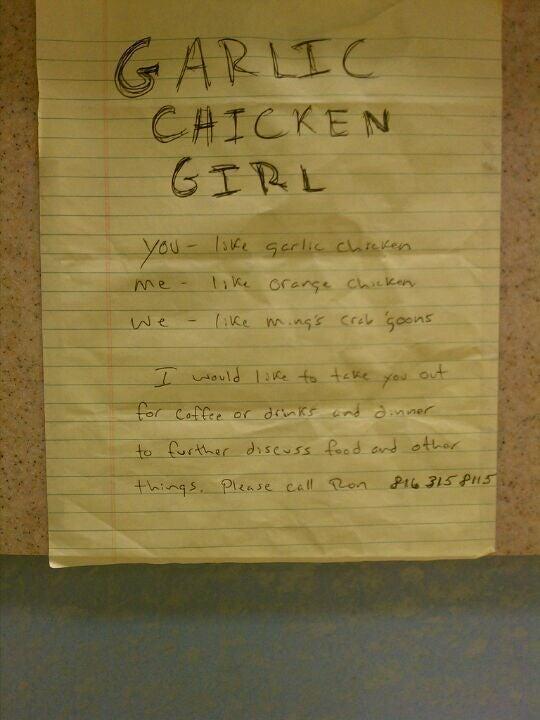 GARLIC
CHICKEN
GIRL
YOU - like garlic chicken
me - like orange chicken
we - like ming's crab 'goons
I would like to take you out
for coffee or drinks and dinner
to further discuss food and other
things. Please call Ron 816 315 8115